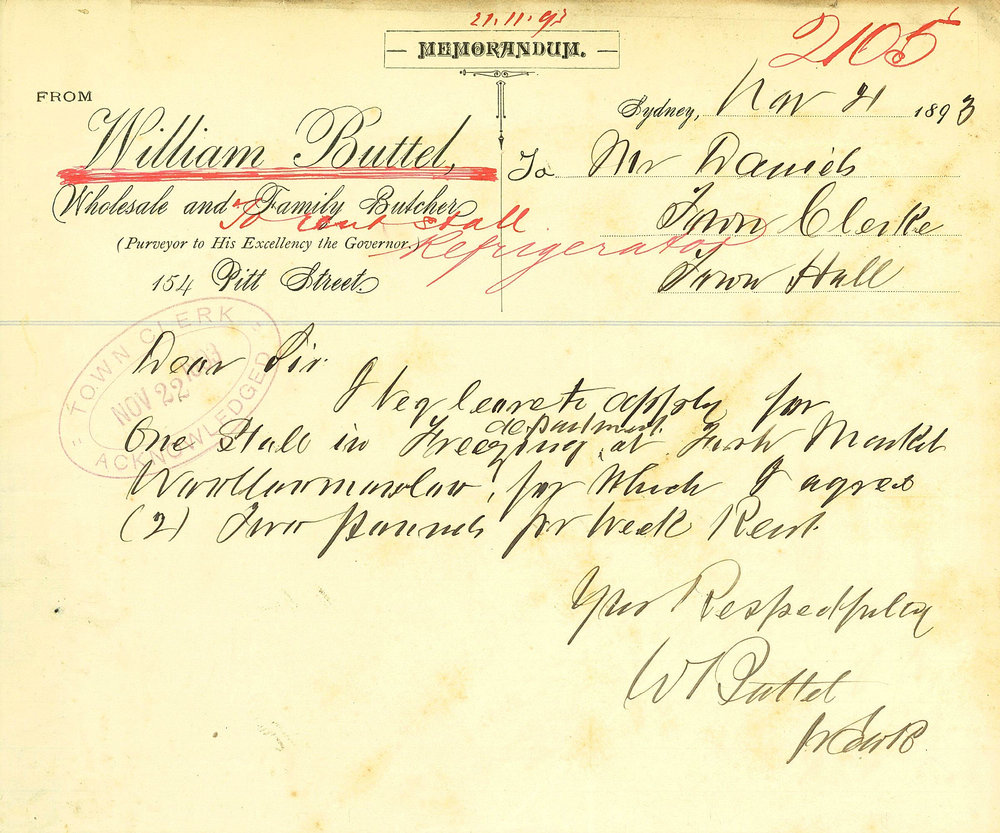 21.11.93
MEMORANDUM.
2105
FROM
Sydney, Nov 21 1893
William Buttel,
To Mr Daniels
Wholesale and Family Butcher
To rent stall
Town Clerke
(Purveyor to His Excellency the Governor.)
Refrigerator
154 Pitt Street.
Town Hall
TOWN CLERK
NOV 22 1893
ACKNOWLEDGED
Dear Sir
I beg leave to apply for
One Stall in Freezing department at Fish Market
Woolloomooloo, for Which I agree
(2) Two pounds per Week Rent
Yours Respectfully
W Buttel